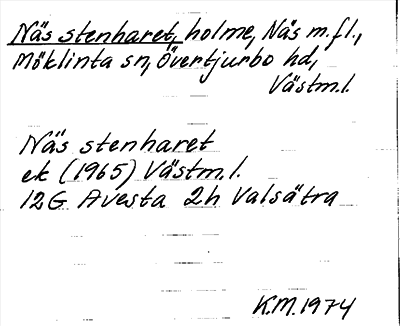 Näs stenharet, holme, Näs m.fl.,
Möklinta sn, Övertjurbo hd,
Västm.l.
Näs stenharet
ek (1965) Västm.l.
12G Avesta 2h Valsätra
K.M. 1974